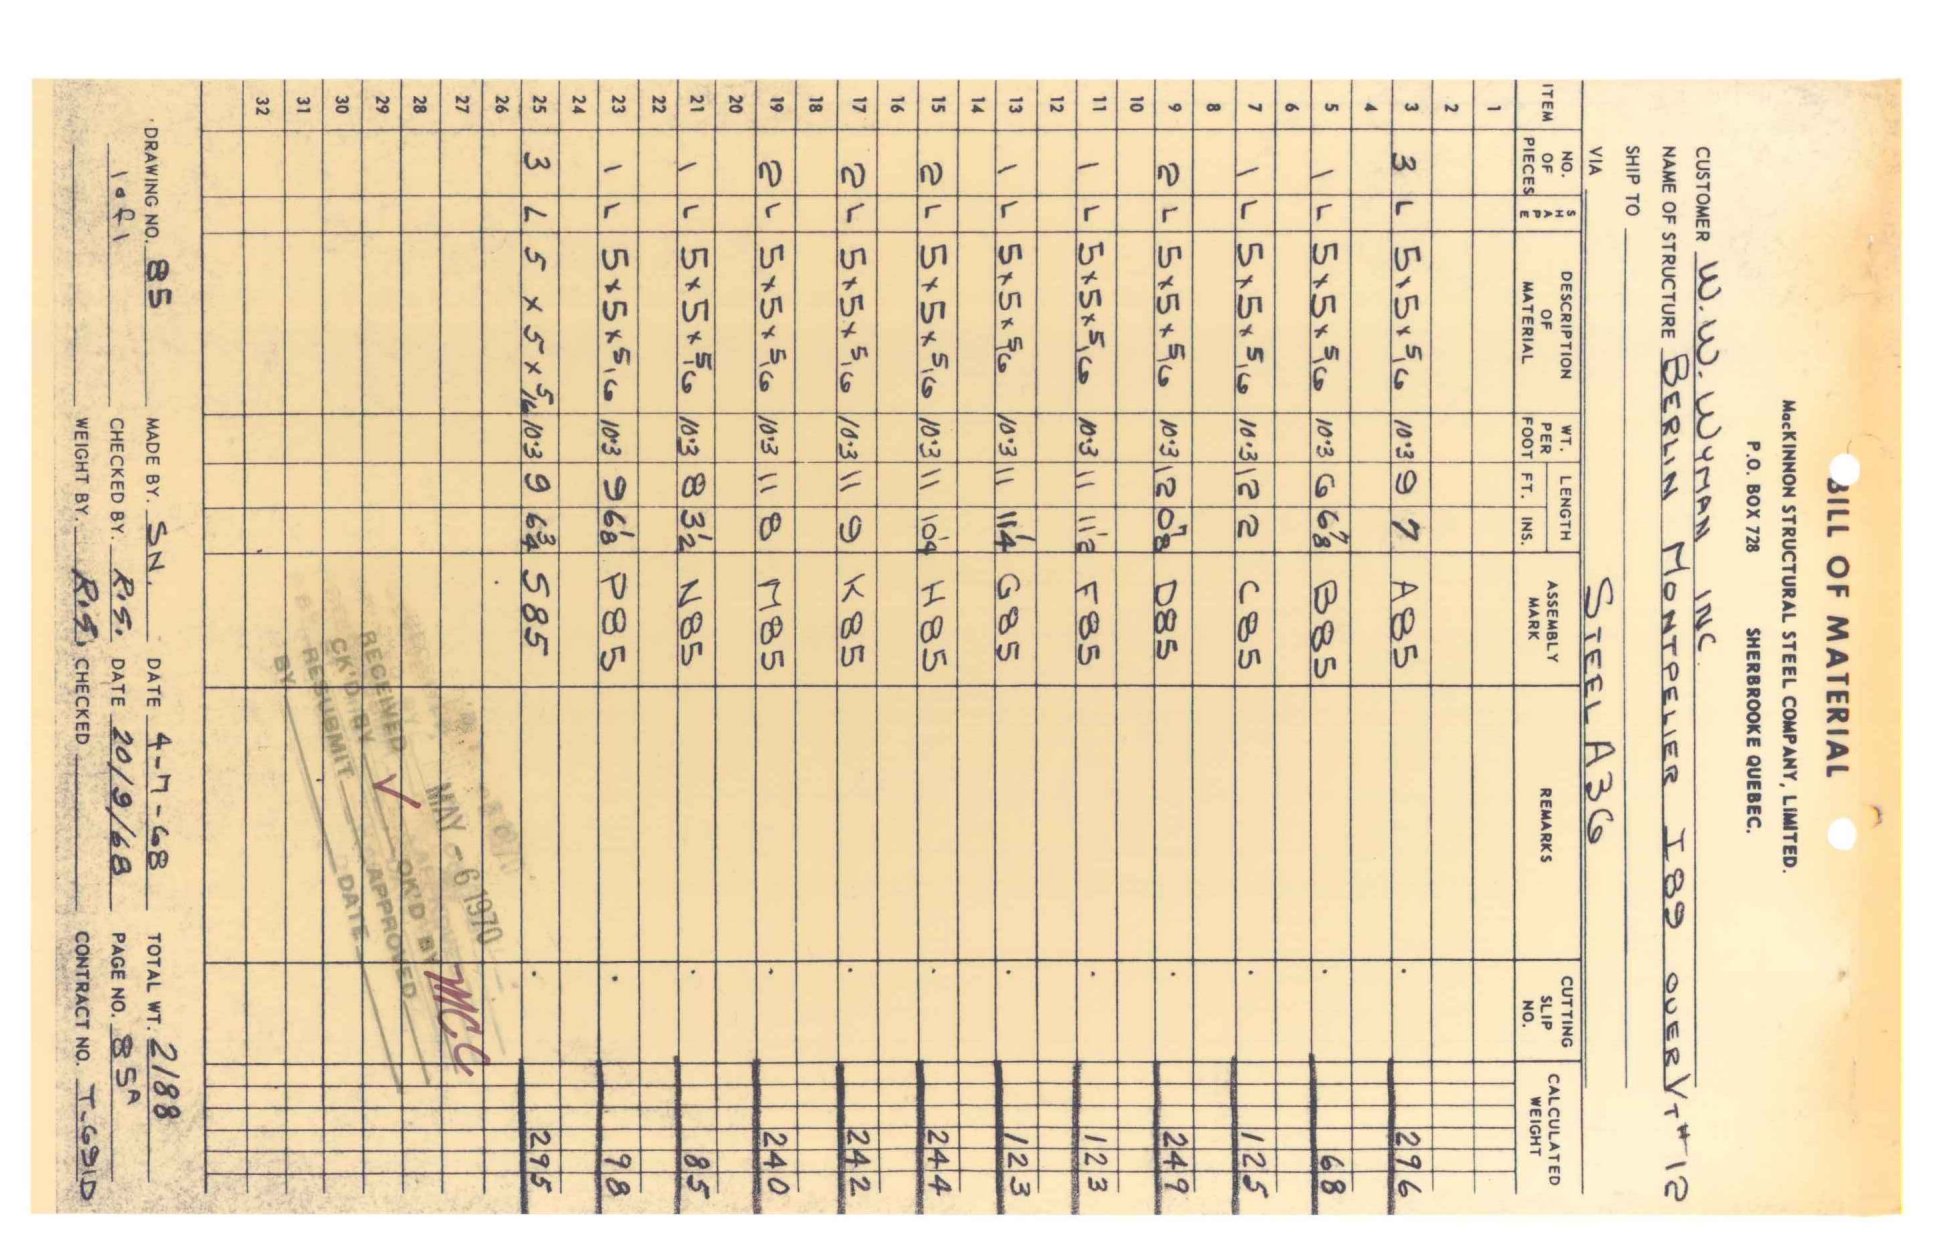 BILL OF MATERIAL
MacKINNON STRUCTURAL STEEL COMPANY, LIMITED.
P.O. BOX 728 SHERBROOKE QUEBEC.
CUSTOMER W.W. WYMAN INC.
NAME OF STRUCTURE BERLIN MONTPELIER I89 OVER VT #12
SHIP TO
VIA STEEL A36
ITEM NO. OF PIECES SHAPE DESCRIPTION OF MATERIAL WT. PER FOOT LENGTH FT. INS. ASSEMBLY MARK REMARKS CUTTING SLIP NO. CALCULATED WEIGHT
1
2
3 3 L 5x5x5/16 10.3 9 7 A85 296
4
5 1 L 5x5x5/16 10.3 6 6 7/8 B85 68
6
7 1 L 5x5x5/16 10.3 12 2 C85 125
8
9 2 L 5x5x5/16 10.3 12 0 7/8 D85 249
10
11 1 L 5x5x5/16 10.3 11 11 1/2 F85 123
12
13 1 L 5x5x5/16 10.3 11 11 1/4 G85 123
14
15 2 L 5x5x5/16 10.3 11 H85 244
16
17 2 L 5x5x5/16 10.3 11 9 K85 242
18
19 2 L 5x5x5/16 10.3 11 8 M85 240
20
21 1 L 5x5x5/16 10.3 8 3 1/2 N85 85
22
23 1 L 5x5x5/16 10.3 9 6 1/8 P85 98
24
25 3 L 5x5x5/16 10.3 9 6 3/4 S85 295
26
27
28
29
30
31
32
MAY - 6 1970
RECEIVED
CK'D BY OK'D BY M.C.C
RESUBMIT APPROVED
BY DATE
DRAWING NO. 85 MADE BY. S.N. DATE 4-7-68 TOTAL WT. 2188
1 of 1 CHECKED BY. R.S. DATE 20/9/68 PAGE NO. 85A
WEIGHT BY. R.S. CHECKED CONTRACT NO. T-691D